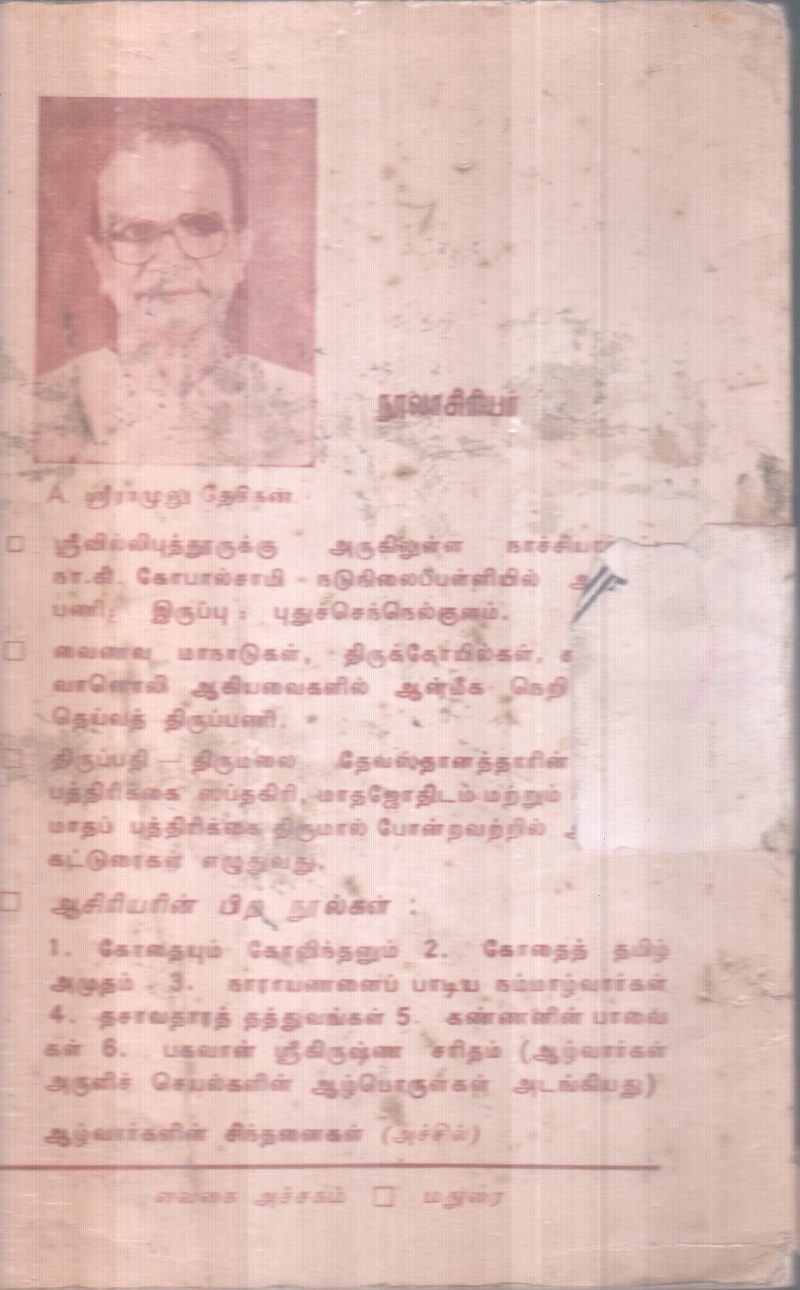 நூலாசிரியர்
A. ஸ்ரீராமுலு தேசிகன்
ஸ்ரீவில்லிபுத்தூருக்கு அருகிலுள்ள
நா.கி. கோபால்சாமி நடுநிலைப்பள்ளியில்
பணி, இருப்பு : புதுச்செந்நெல்குளம்.
வைணவ மாநாடுகள், திருக்கோயில்கள்,
வானொலி ஆகியவைகளில் ஆன்மீக நெறி
தெய்வத் திருப்பணி.
திருப்பதி — திருமலை தேவஸ்தானத்தாரின்
பத்திரிக்கை ஸப்தகிரி, மாதஜோதிடம் மற்றும்
மாதப் பத்திரிக்கை திருமால் போன்றவற்றில்
கட்டுரைகள் எழுதுவது.
ஆசிரியரின் பிற நூல்கள் :
1. கோதையும் கோவிந்தனும் 2. கோதைத் தமிழ்
அமுதம் 3. நாராயணனைப் பாடிய நம்மாழ்வார்கள்
4. தசாவதாரத் தத்துவங்கள் 5. கண்ணனின் பாவை
கள் 6. பகவான் ஸ்ரீகிருஷ்ண சரிதம் (ஆழ்வார்கள்
அருளிச் செயல்களின் ஆழ்பொருள்கள் அடங்கியது)
ஆழ்வார்களின் சிந்தனைகள் (அச்சில்)
வைகை அச்சகம் □ மதுரை